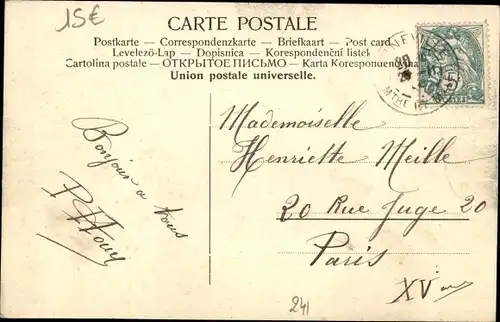 15€
CARTE POSTALE
Postkarte — Correspondenzkarte — Briefkaart — Post card
Levelező-Lap — Dopisnica — Korespondenční lístek
Cartolina postale — ОТКРЫТОЕ ПИСЬМО — Karta Korespondencyjna
Union postale universelle.
NEVILLE
Mademoiselle
Henriette Meille
20 Rue Juge 20
Paris
XVe
Bonjour à
Vous
241